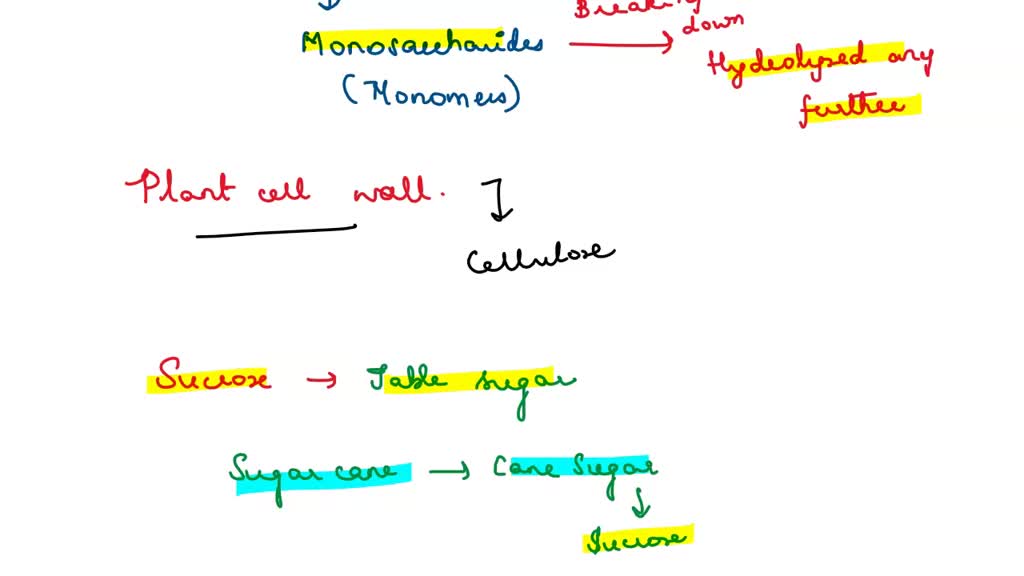 Breaking
down
Monosaccharides
Hydrolysed any
further
(Monomers)
Plant cell wall.
Cellulose
Sucrose → Table sugar
Sugar cane → Cane Sugar
Sucrose